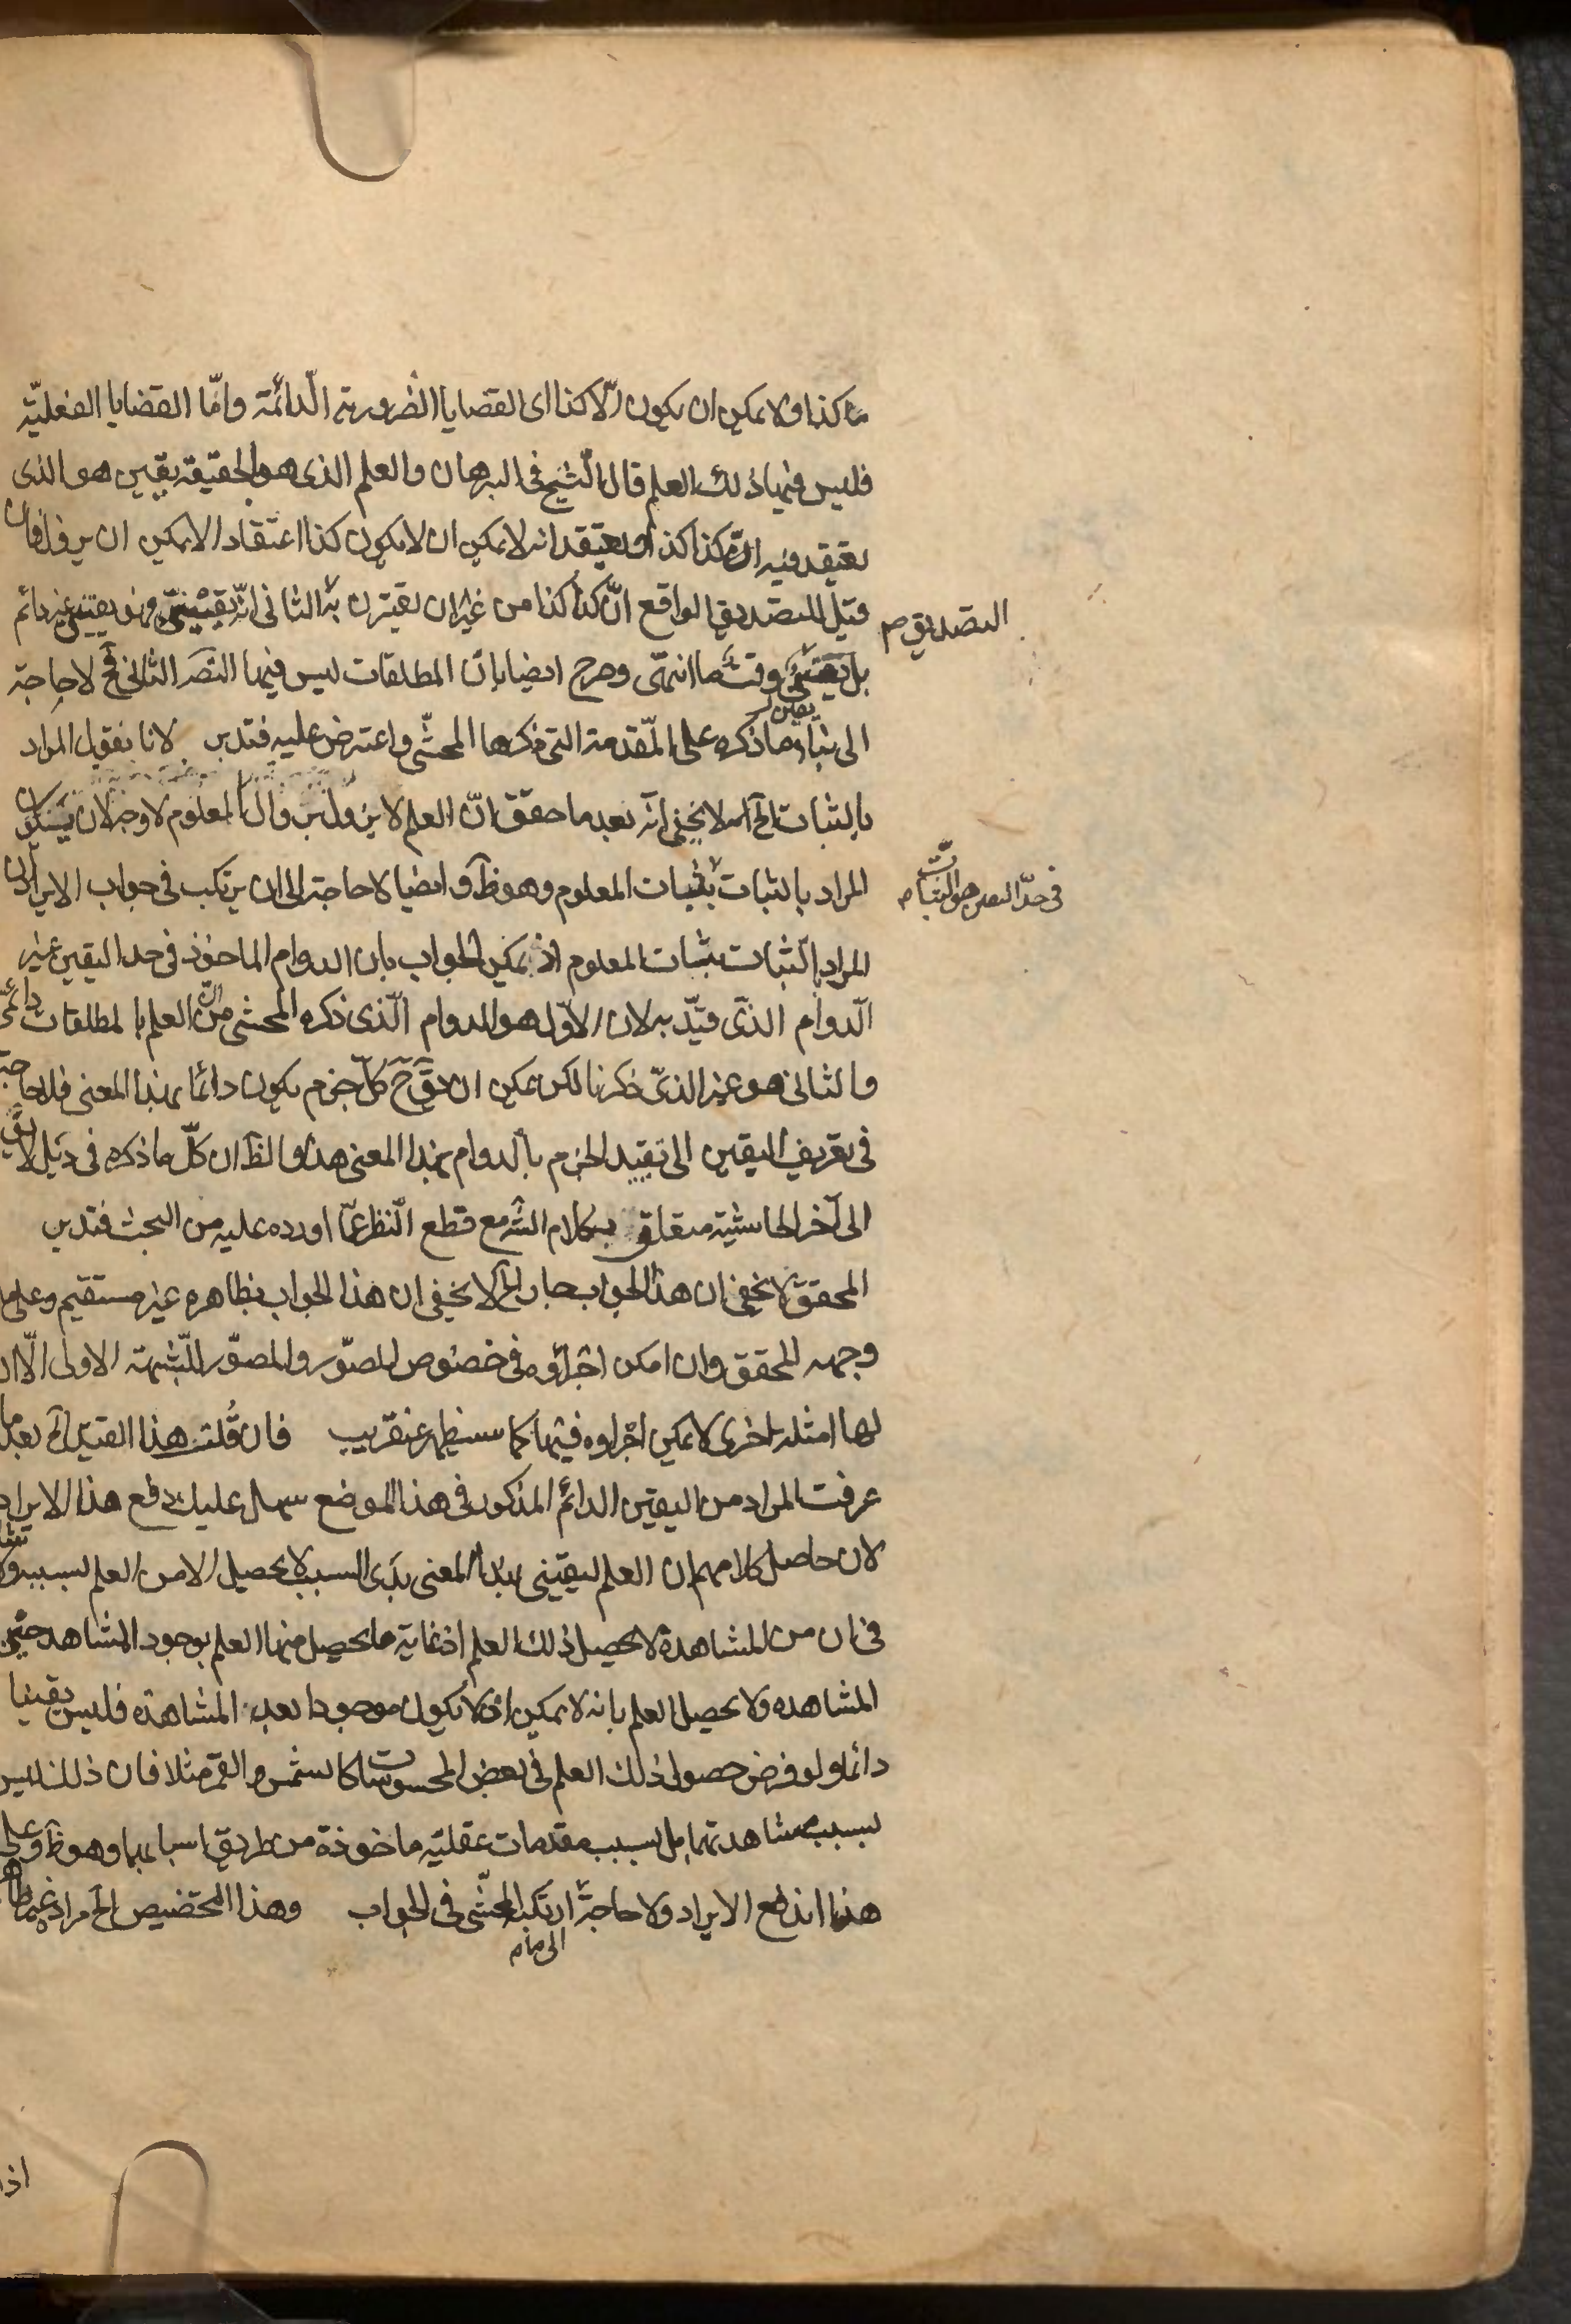 ما كذا ولا يمكن ان يكون الّا كذا اى القضايا الضرورية الدّائمة وامّا القضايا الفعليّة
فليس فيها ذلك العلم قال الشيخ فى البرهان والعلم الذى هو بالحقيقة يقين هو الذى
يعتقد فيه انّ كذا كذا ويعتقد انه لا يمكن ان لا يكون كذا اعتقادا لا يمكن ان يزول فان
قيل للتصديق الواقع انّ كذا كذا من غير ان يقترن به الثانى انّه يقينىّ فهو يقينى غير دائم
التصديق صح
بل يقينىّ وقتا ما انتهى وصرح ايضا بانّ المطلقات ليس فيها التصد الثانى فح لا حاجة
الى بناء ما ذكره على المقدمة التى ذكرها المحشّى واعترض عليه فتدبر لانا نقول المراد
بالثبات الخ لا يخفى انّه بعد ما حقق انّ العلم لا يزول بزوال المعلوم لا وجه لان يكون
المراد بالثبات ثبات المعلوم وهو ظ وايضا لا حاجة الى ان يرتكب فى جواب الايراد ان
المراد بالثبات ثبات المعلوم اذ يمكن الجواب بان الدوام الماخوذ فى حد اليقين غير
الدّوام الذّى قيّد به لان الاوّل هو الدوام الّذى ذكره المحشى من انّ العلم بالمطلقات دائمى
والثانى هو غير الذىّ ذكرنا لكن يمكن ان يق ح كلّ جزم يكون دائما بهذا المعنى فلا حاجة
فى تعريف اليقين الى تقييد الجزم بالدوام بهذا المعنى هذا والظ ان كلّ ما ذكره فى ذيل لا يق
الى آخر الحاشية متعلق بكلام الش مع قطع النّظر عمّا اورده عليه من البحث فتدبر
المحقق لا يخفى ان هذا الجواب جار الخ لا يخفى ان هذا الجواب بظاهره غير مستقيم وعلى ما
وجهه المحقق وان امكن اجراؤه فى خصوص المصوّر والمصوّر للشبهة الاولى الّا ان
لها امثلة اخرى لا يمكن اجراوه فيها كما سيظهر عنقريب فان قُلت هذا القيد الخ بعد ما
عرفت المراد من اليقين الدائم المذكور فى هذا الموضع سهل عليك دفع هذا الايراد
لان حاصل كلامهم ان العلم اليقينى بهذا المعنى بذى السبب لا يحصل الا من العلم بسببه ولا
فى ان من المشاهدة لا يحصل ذلك العلم اذ غاية ما يحصل منها العلم بوجود المشاهد حين
المشاهده ولا يحصل العلم بانه لا يمكن ان لا يكون موجودا بعد المشاهدة فليس يقينا
دائما ولو فرض حصول ذلك العلم فى بعض المحسوسات كالشمس والقمر مثلا فان ذلك ليس
بسبب مشاهدتهما بل بسبب مقدمات عقليّة ماخوذة من طريق اسبابهما وهو ظ وعلى
هذا اندفع الايراد ولا حاجة الى ما ارتكبه المحشّى فى الجواب وهذا التخصيص الخ
اذا